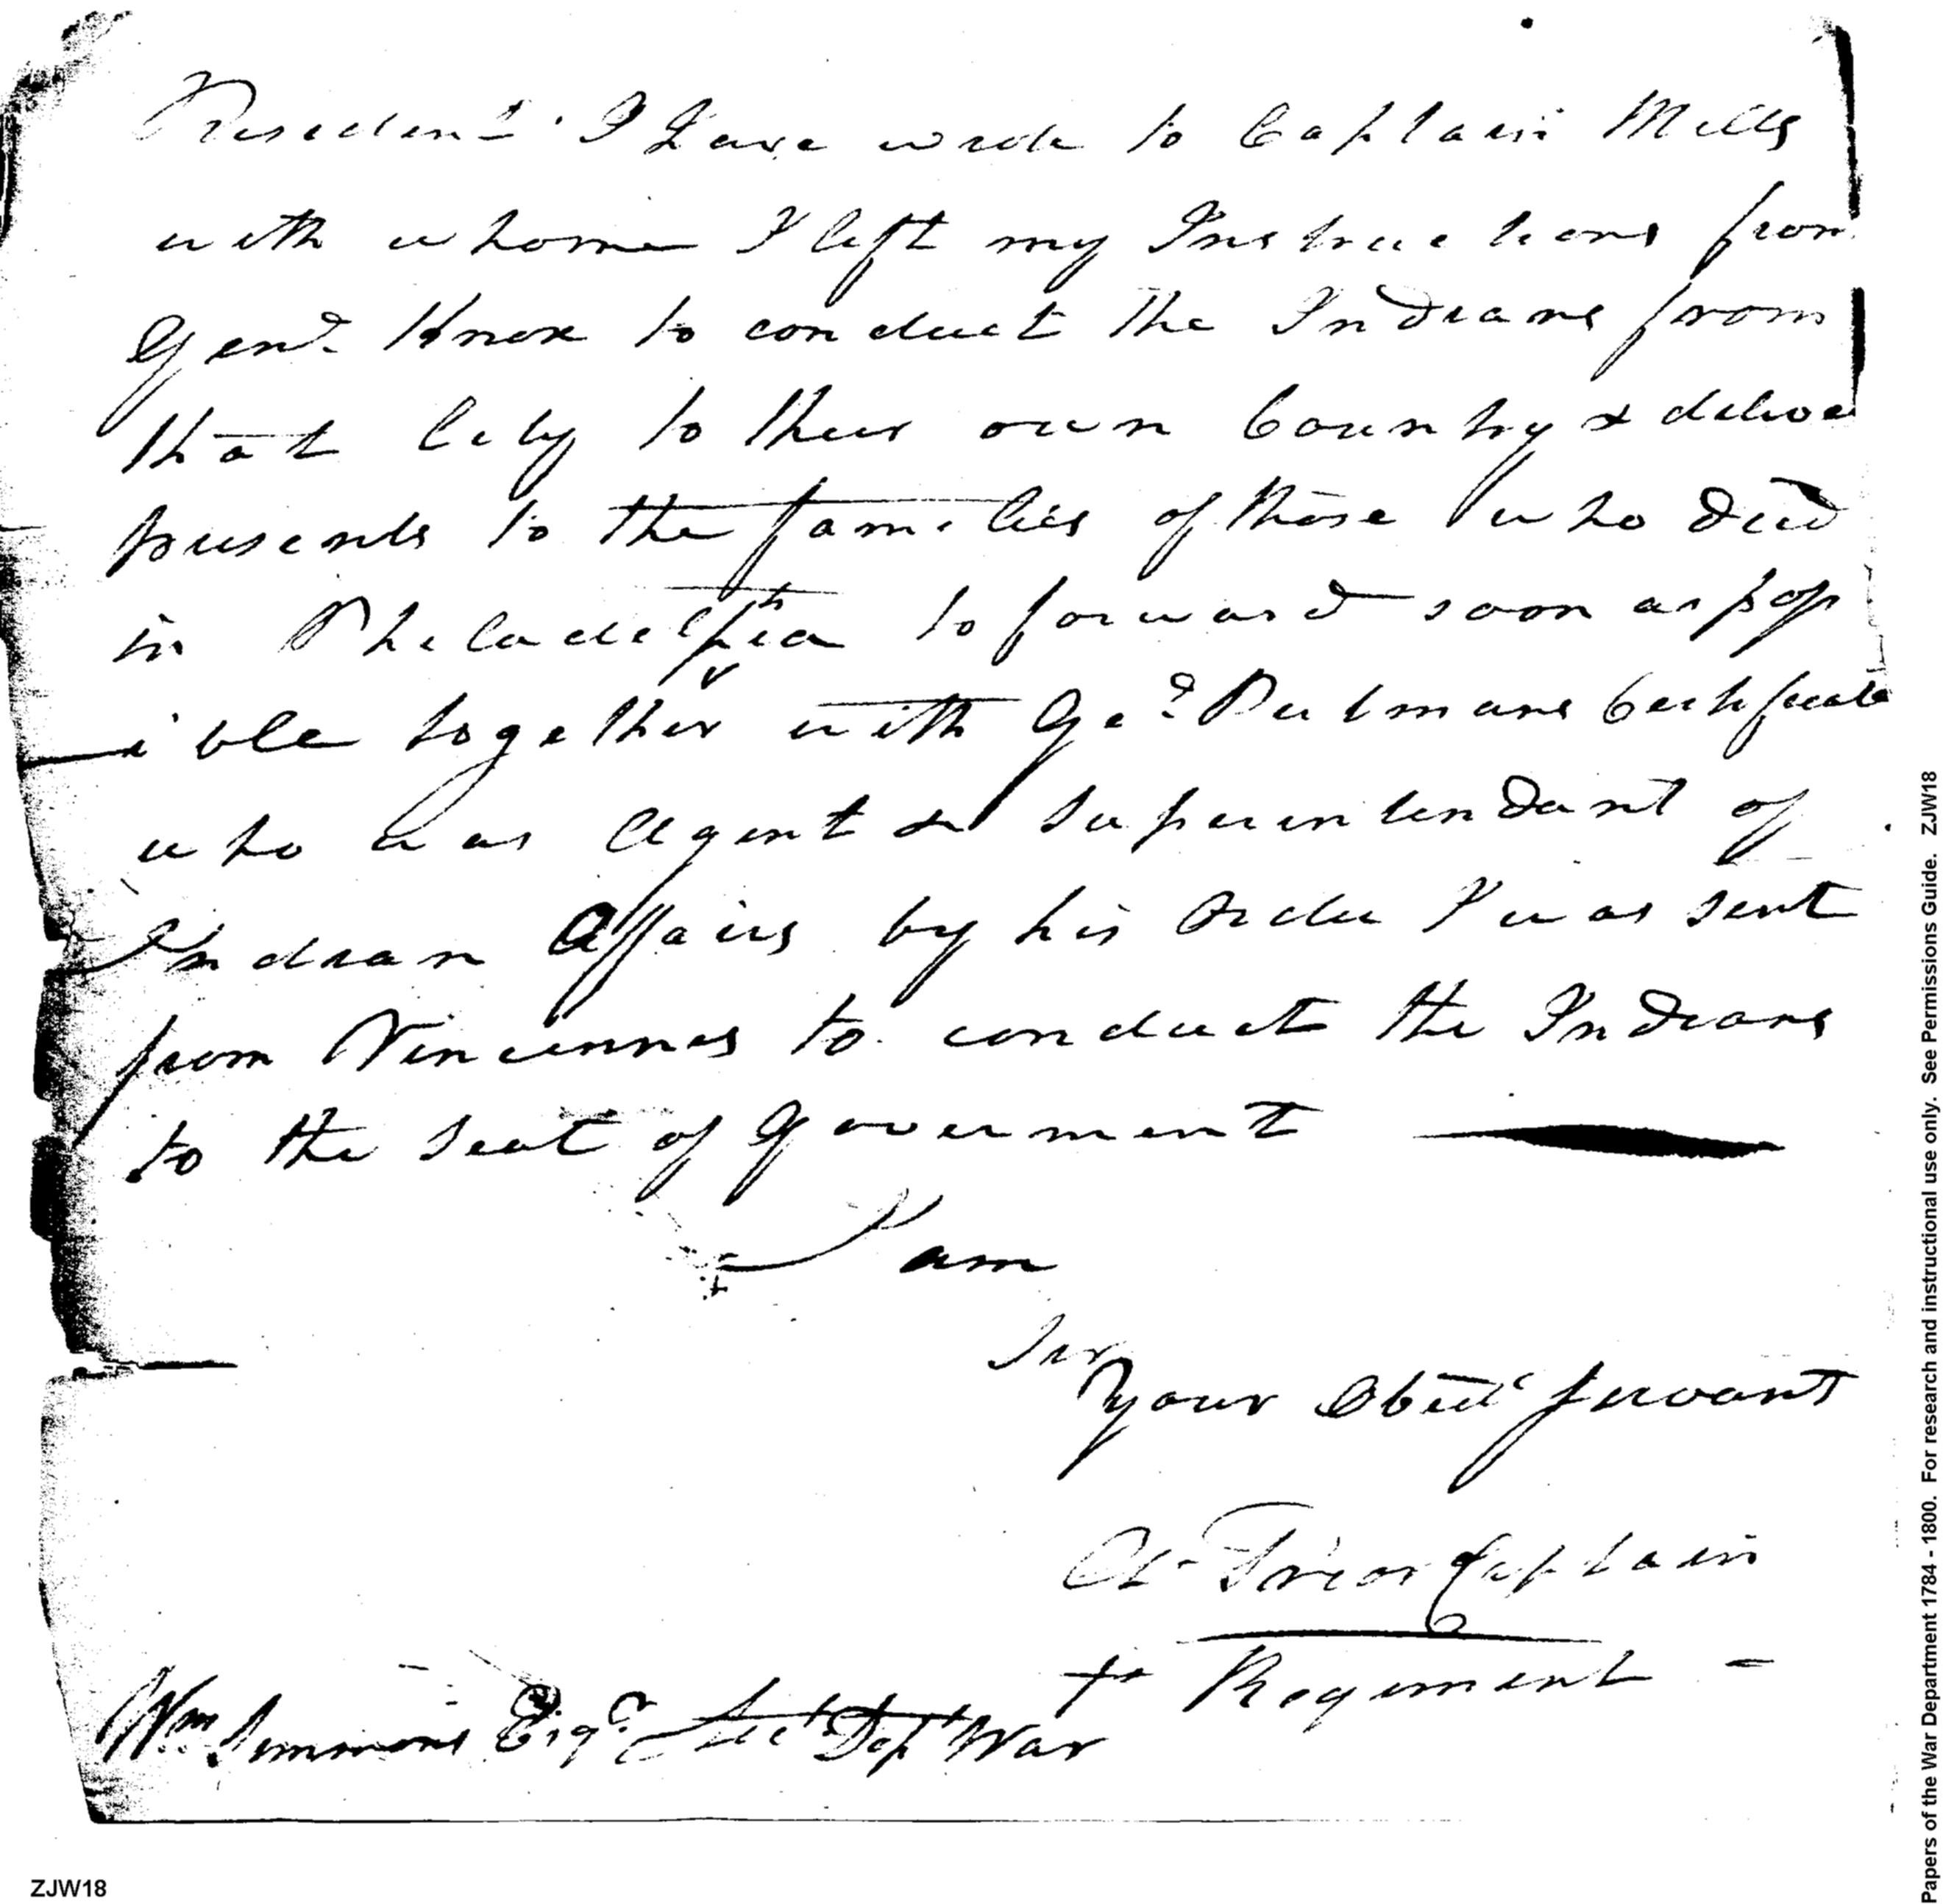 President. I Have wrote to Captain Mills
with whome I left my Instructions from
Genl Knox to conduct the Indians from
that City to their own Country & deliver
presents to the families of those who died
in Philadelphia to forward soon as poss
ible together with Gel Putmans Certificate
who was Agent & Superintendant of
Indian Affairs by his Order I was sent
from Vincennes to conduct the Indians
to the seat of Goverment
I am
Sir
Your Obedt Servant
A. Prior Captain
Regiment
Wm Simmons Esqr Acct Dept War
ZJW18
Papers of the War Department 1784 - 1800. For research and instructional use only. See Permissions Guide. ZJW18